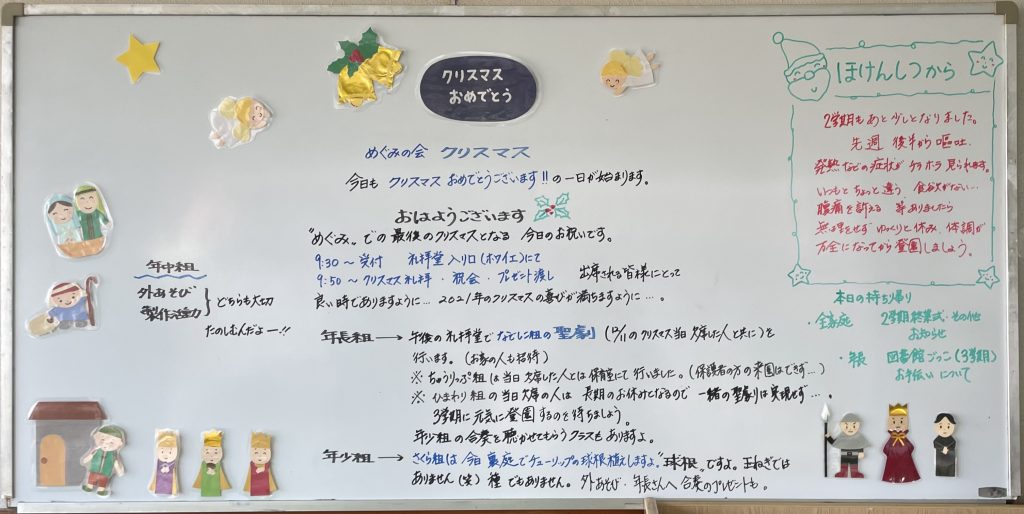 クリスマス
おめでとう
めぐみの会 クリスマス
今日も クリスマス おめでとうございます!! の一日が始まります。
おはようございます
"めぐみ"での最後のクリスマスとなる 今日のお祝いです。
9:30〜受付 礼拝堂入り口(ホワイエ)にて
9:50〜クリスマス礼拝・祝会・プレゼント渡し 出席される皆様にとって
良い時でありますように… 2021年のクリスマスの喜びが満ちますように…。
年中組
外あそび
製作活動
どちらも大切
たのしむんだよー!!
年長組→ 午後の礼拝堂でなでしこ組の聖劇 (12/11のクリスマス当日欠席した人と共に)を
行います。(お家の人も招待)
※ちゅうりっぷ組は当日欠席した人とは保育室にて行いました。(保護者の方の来園はできず…)
※ひまわり組の当日欠席の人は 長期のお休みとなるので 一緒の聖劇は実現せず…。
3学期に元気に登園するのを待ちましょう。
年少組の合奏を聴かせてもらうクラスもありますよ。
年少組→ さくら組は今日裏庭でチューリップの球根植えしますよ。"球根"ですよ。玉ねぎでは
ありません(笑) 種でもありません。外あそび・年長さんへ合奏のプレゼントも。
ほけんしつから
2学期もあと少しとなりました。
先週後半から嘔吐、
発熱などの症状がケラホラ見られます。
いつもとちょっと違う 食欲がない…
腹痛を訴える 等ありましたら
無理をせずゆっくりと休み、体調が
万全になってから登園しましょう。
本日の持ち帰り
・全家庭 2学期終業式・その他
お知らせ
・年長 図書館ごっこ(3学期)
お手伝いについて